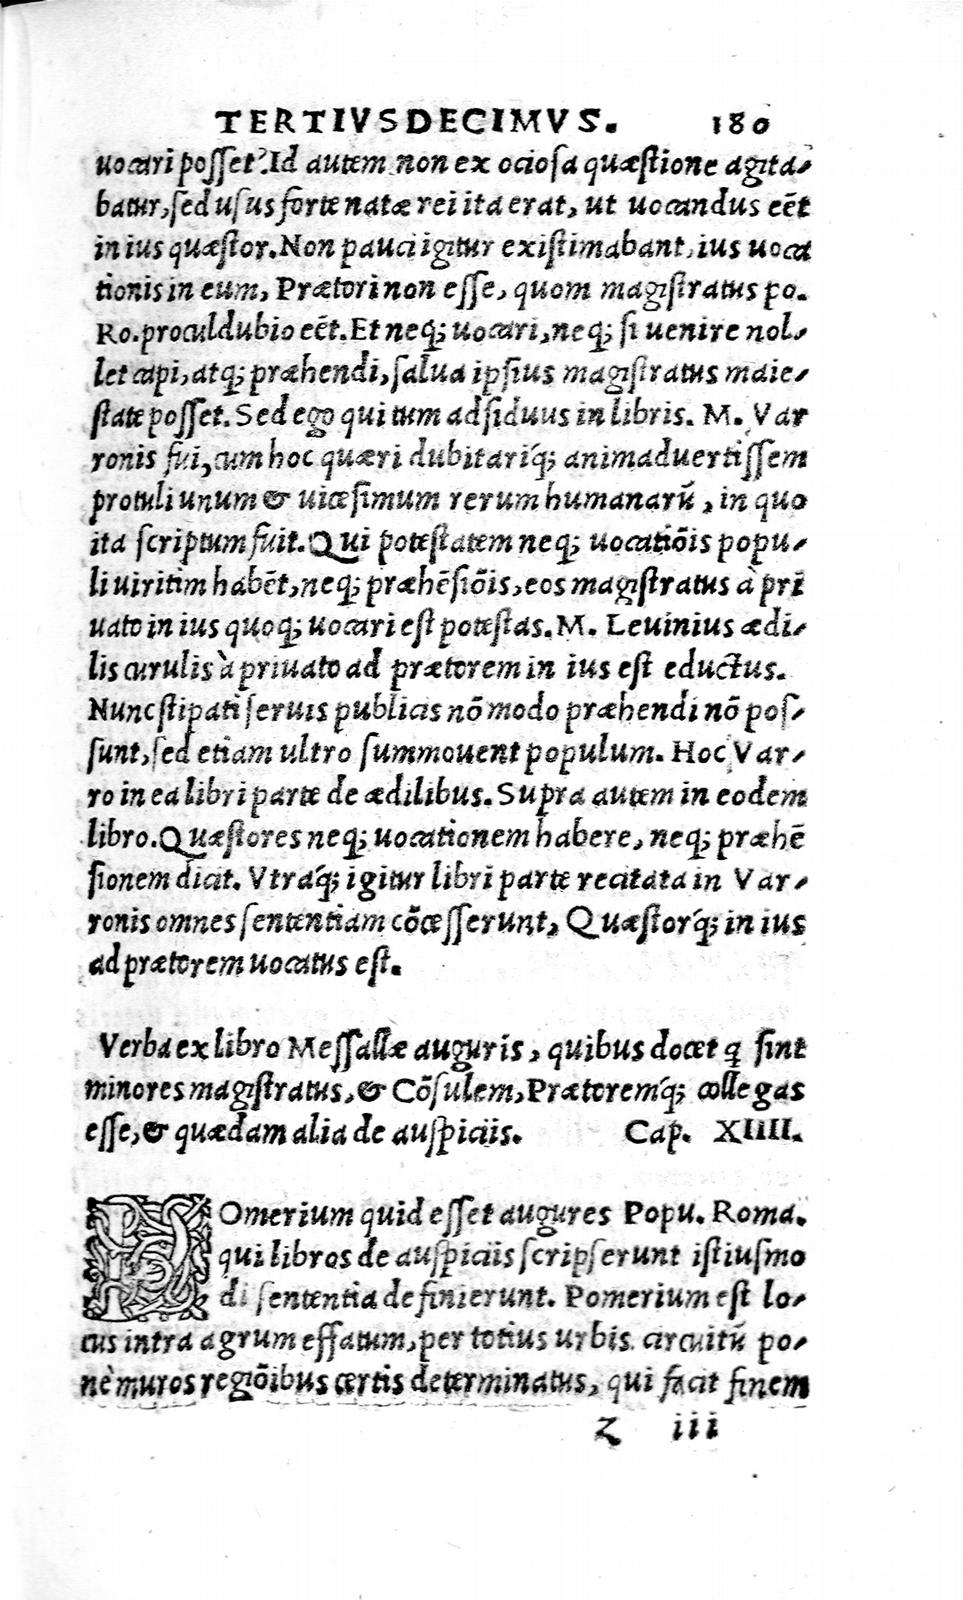 TERTIVSDECIMVS. 180
uocari posset? Id autem non ex ociosa quæstione agita-
batur, sed usus forte natæ rei ita erat, ut uocandus eēt
in ius quæstor. Non pauci igitur existimabant, ius uoca
tionis in eum, Prætori non esse, quom magistratus po.
Ro. proculdubio eēt. Et neq; uocari, neq; si uenire nol-
let capi, atq; præhendi, salua ipsius magistratus maie-
state posset. Sed ego qui tum adsiduus in libris. M. Var
ronis fui, cum hoc quæri dubitariq́; animaduertissem
protuli unum & uicesimum rerum humanarū, in quo
ita scriptum fuit. Qui potestatem neq; uocatiōis popu-
li uiritim habēt, neq; præhēsiōis, eos magistratus à pri
uato in ius quoq; uocari est potestas. M. Leuinius ædi-
lis curulis à priuato ad prætorem in ius est eductus.
Nunc stipati seruis publicis nō modo præhendi nō pos-
sunt, sed etiam ultro summouent populum. Hoc Var-
ro in ea libri parte de ædilibus. Supra autem in eodem
libro. Quæstores neq; uocationem habere, neq; præhē
sionem dicit. Vtraq́; igitur libri parte recitata in Var-
ronis omnes sententiam cōcesserunt, Quæstorq́; in ius
ad prætorem uocatus est.
Verba ex libro Messallæ auguris, quibus docet q̄ sint
minores magistratus, & Cōsulem, Prætoremq́; collegas
esse, & quædam alia de auspiciis. Cap. XIIII.
POmerium quid esset augures Popu. Roma.
qui libros de auspiciis scripserunt istiusmo
di sententia definierunt. Pomerium est lo-
cus intra agrum effatum, per totius urbis circuitū po-
nè muros regiōibus certis determinatus, qui facit finem
z iii